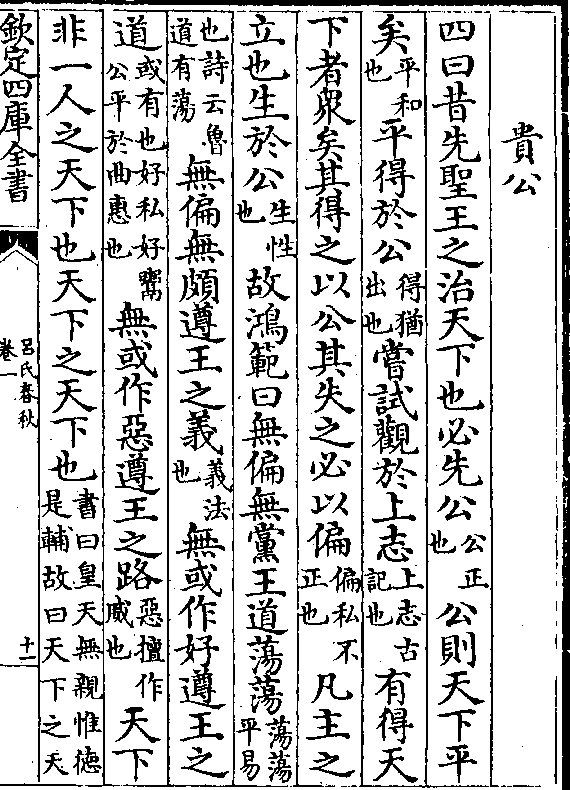 貴公
四曰昔先聖王之治天下也必先公公正也公則天下平
矣平和也平得於公得猶出也嘗試觀於上志上志古記也有得天
下者衆矣其得之以公其失之必以偏偏私不正也凡主之
立也生於公生性也故鴻範曰無偏無黨王道蕩蕩蕩蕩平易
也詩云魯道有蕩無偏無頗遵王之義義法也無或作好遵王之
道或有也好私好鬻公平於曲惠也無或作惡遵王之路惡擅作威也天下
非一人之天下也天下之天下也書曰皇天無親惟德是輔故曰天下之天
欽定四庫全書
呂氏春秋
卷一
十一